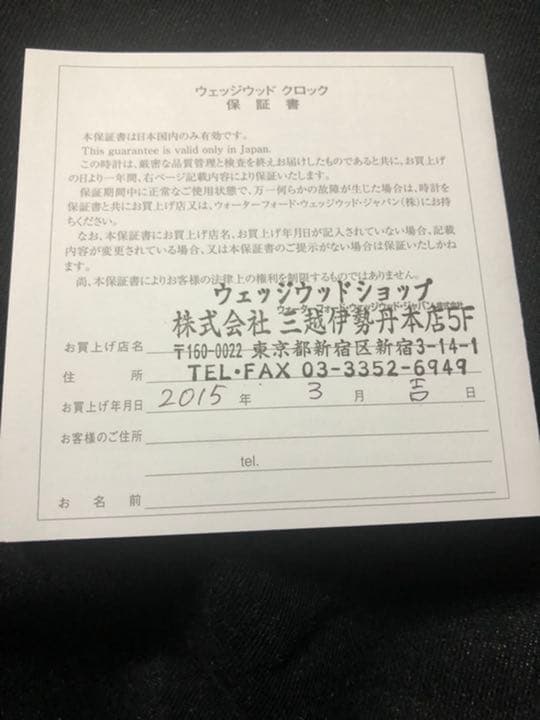 ウェッジウッド クロック
保証書
本保証書は日本国内のみ有効です。
This guarantee is valid only in Japan.
この時計は、厳密な品質管理と検査を終えお届けしたものであると共に、お買上げ
の日より一年間、右ページ記載内容により保証いたします。
保証期間中に正常なご使用状態で、万一何らかの故障が生じた場合は、時計を
保証書と共にお買上げ店又は、ウォーターフォード・ウェッジウッド・ジャパン(株)にお持
ちください。
なお、本保証書にお買上げ店名、お買上げ年月日が記入されていない場合、記載
内容が変更されている場合、又は本保証書のご提示がない場合は保証いたしかね
ます。
尚、本保証書によりお客様の法律上の権利を制限するものではありません。
ウェッジウッドショップ
ウォーターフォード・ウェッジウッド・ジャパン株式会社
株式会社 三越伊勢丹本店5F
お買上げ店名 〒160-0022 東京都新宿区新宿3-14-1
住所 TEL・FAX 03-3352-6949
お買上げ年月日 2015 年 3 月 吉 日
お客様のご住所
tel.
お名前